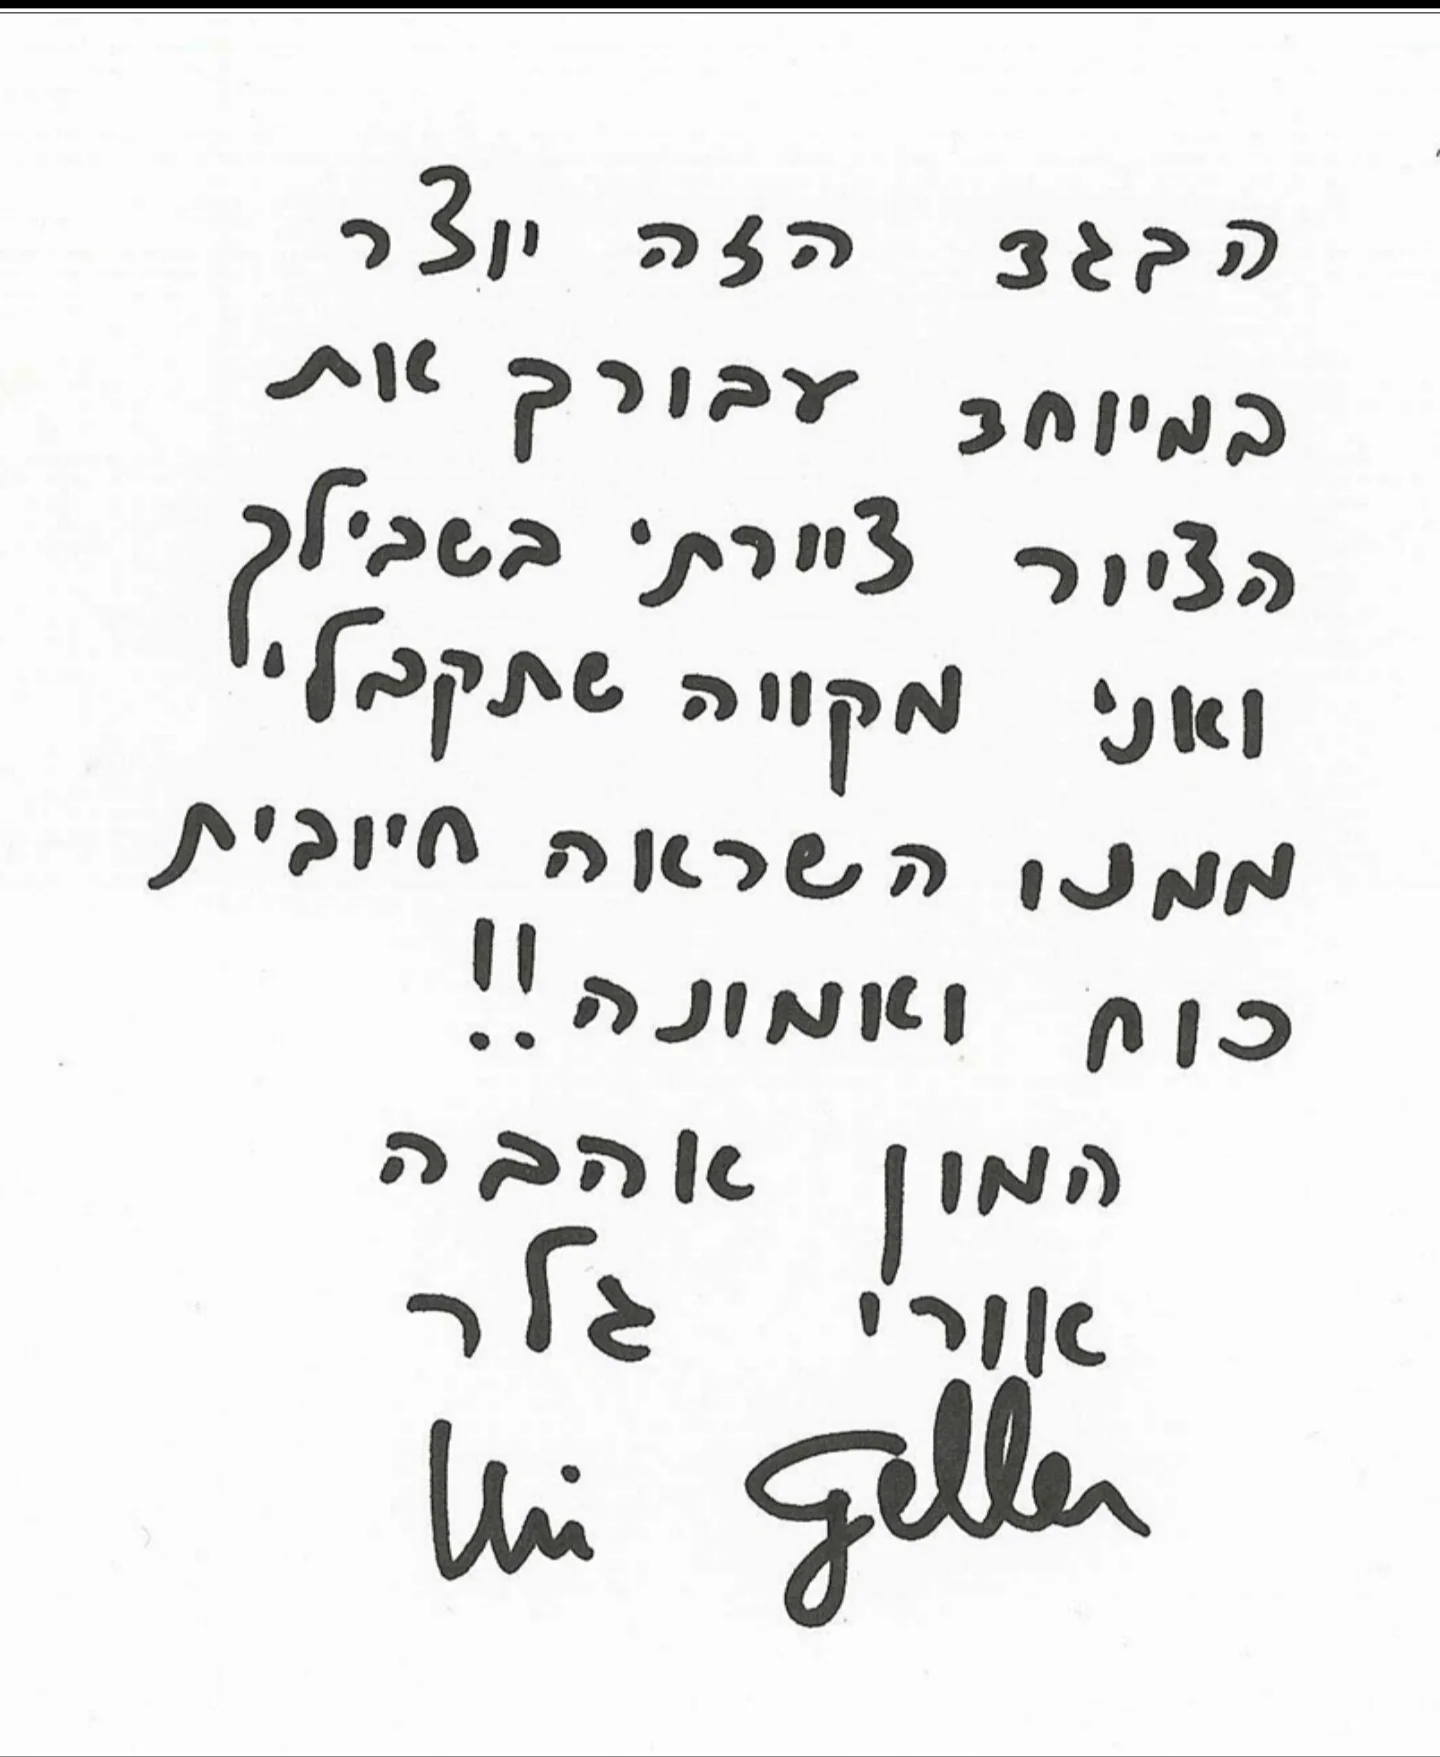 הבגד הזה יוצר
במיוחד עבורך את
הציור ציירתי בשבילך
ואני מקווה שתקבלי
ממנו השראה חיובית
כוח ואמונה!!
המון אהבה
אורי גלר
Uri Geller